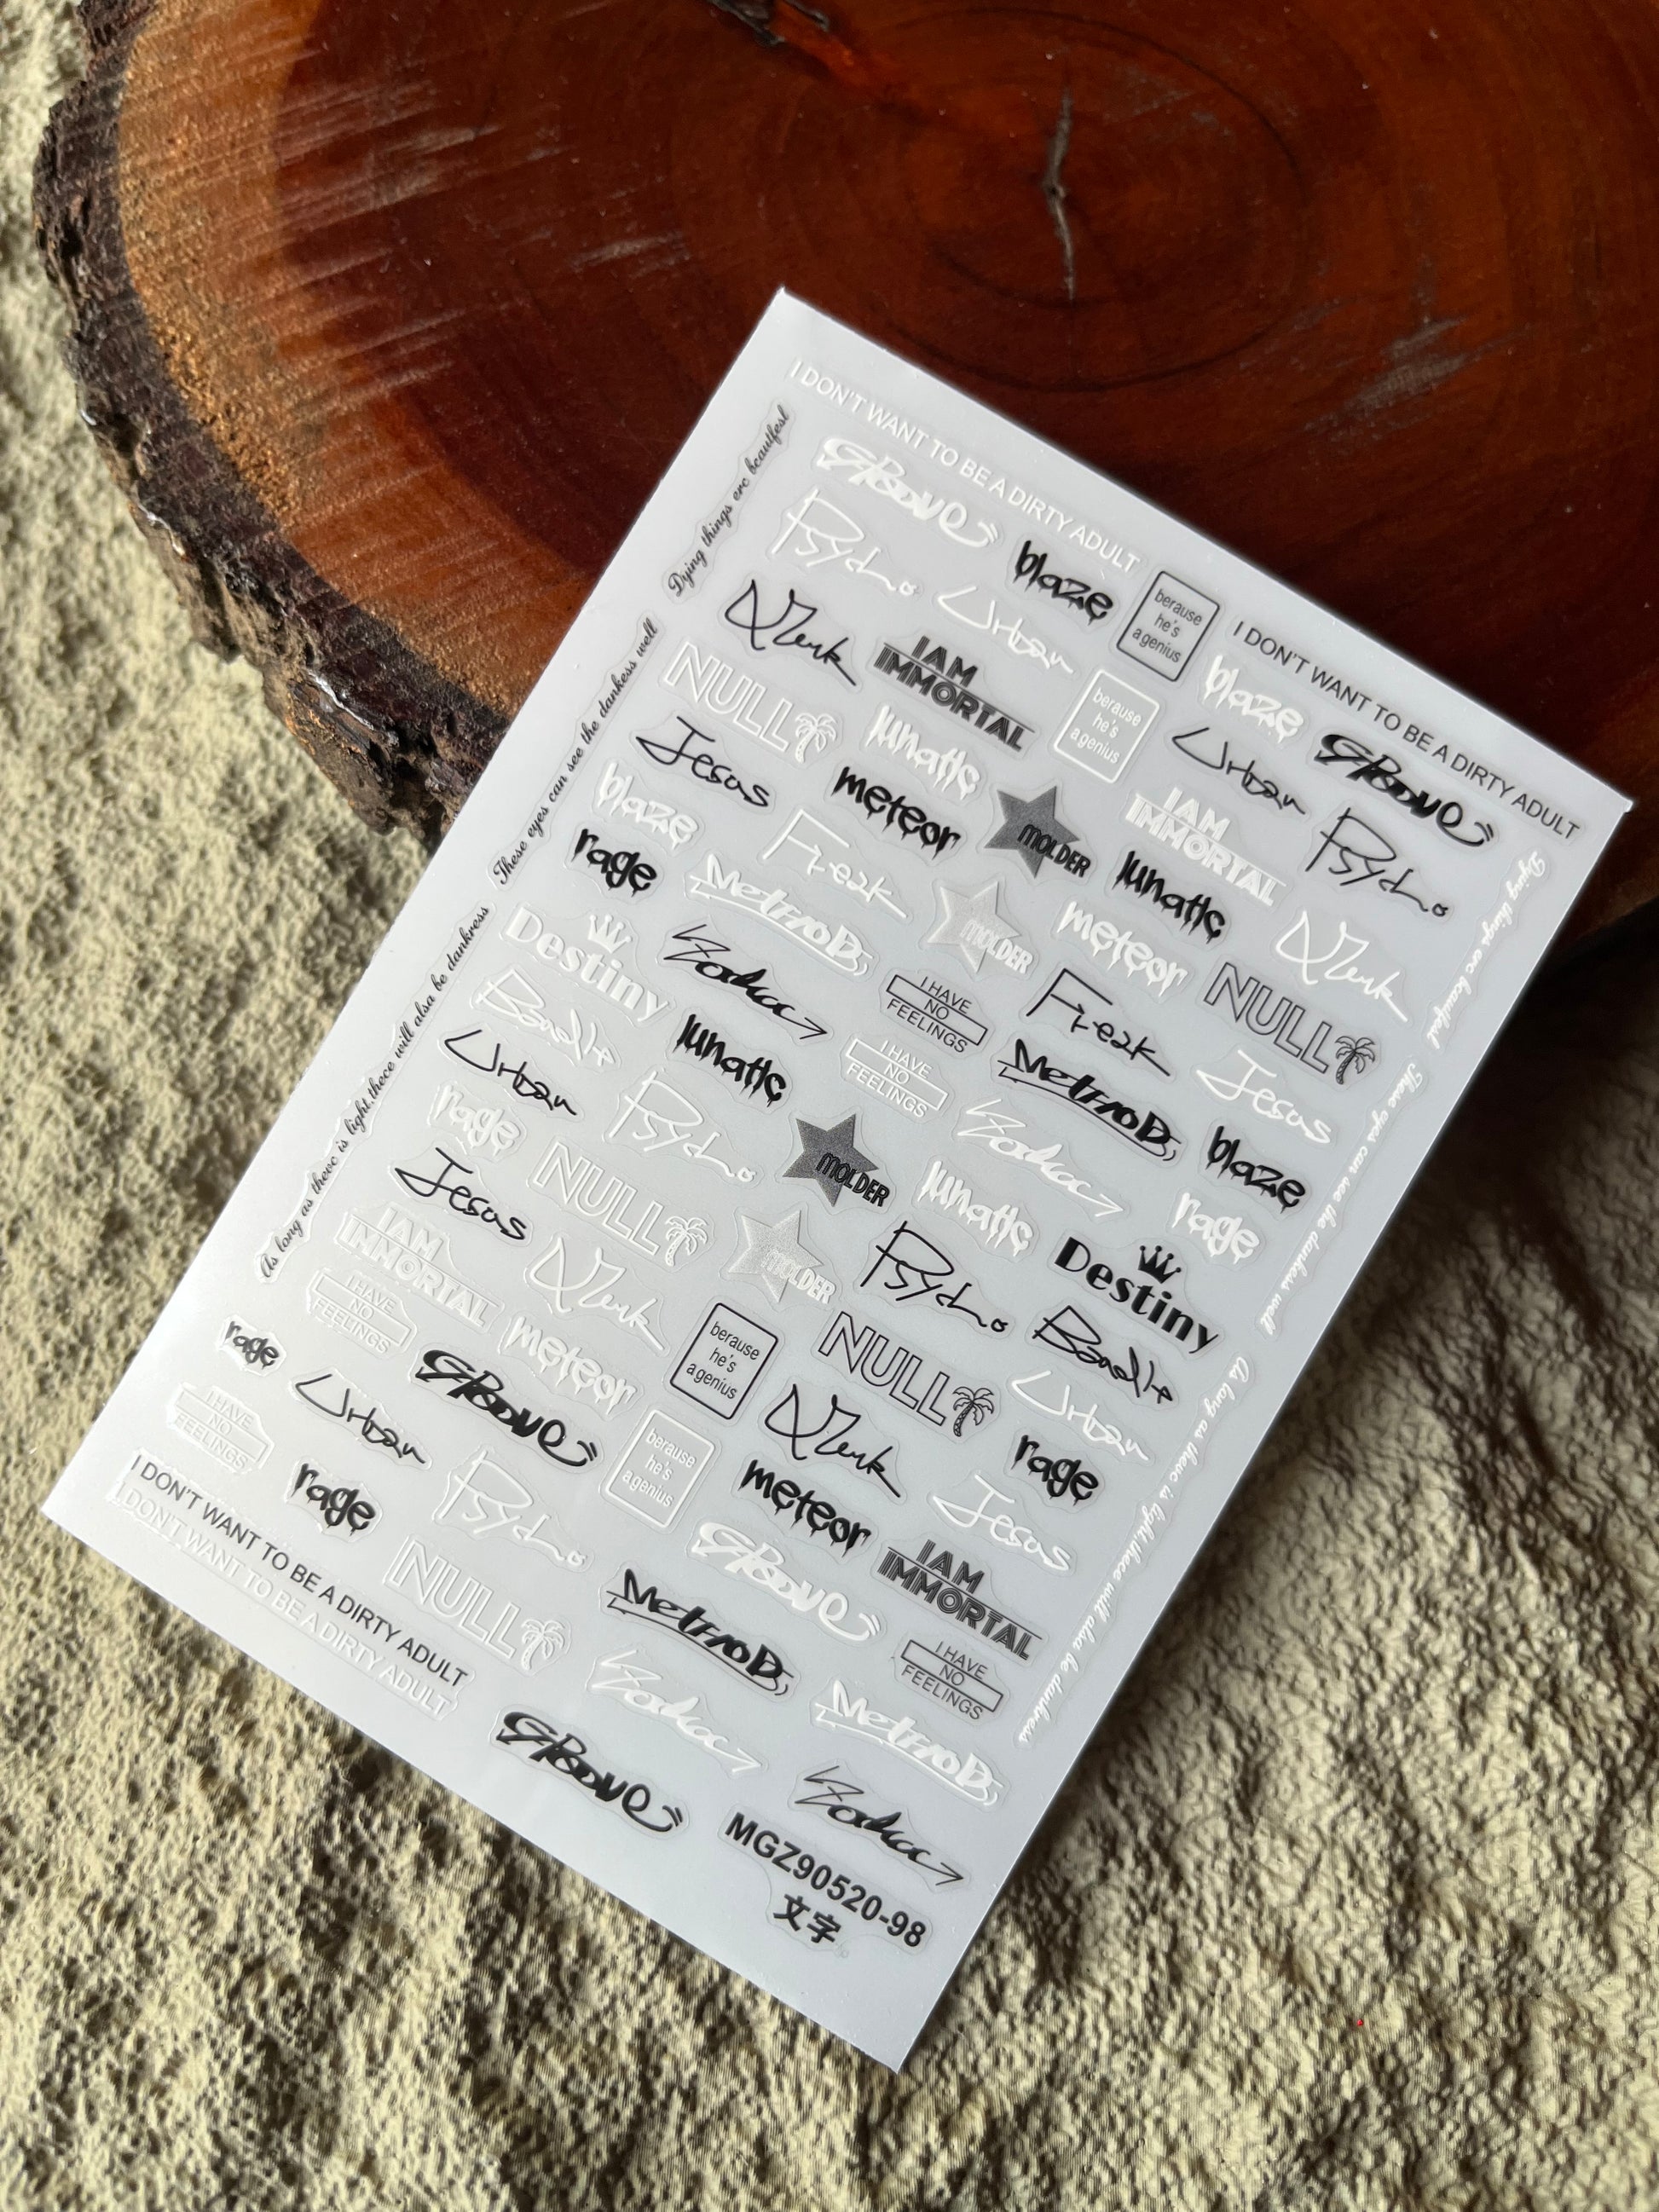 I DON'T WANT TO BE A DIRTY ADULT
I DON'T WANT TO BE A DIRTY ADULT
Dying things erc beautfesl
These eyes can see the dankess well
As long as thevc is light,thece will alsa be dankress
GROOVE
Psycho
blaze
berause
he's
a genius
Urban
I AM
IMMORTAL
berause
he's
a genius
blaze
GROOVE
NULL
lunatic
Urban
Psycho
Jesus
meteor
MOLDER
I AM
IMMORTAL
blaze
Freak
lunatic
rage
MOLDER
meteor
NULL
Destiny
Zodiac
I HAVE
NO
FEELINGS
Freak
Jesus
Bandit
lunatic
I HAVE
NO
FEELINGS
Urban
Psycho
Zodiac
blaze
rage
NULL
MOLDER
lunatic
rage
Jesus
MOLDER
Psycho
Destiny
I AM
IMMORTAL
I HAVE
NO
FEELINGS
meteor
berause
he's
a genius
NULL
Bandit
rage
GROOVE
Urban
I HAVE
NO
FEELINGS
Urban
berause
he's
a genius
meteor
rage
rage
Psycho
GROOVE
Jesus
I AM
IMMORTAL
NULL
I HAVE
NO
FEELINGS
I DON'T WANT TO BE A DIRTY ADULT
I DON'T WANT TO BE A DIRTY ADULT
Zodiac
GROOVE
Zodiac
MGZ90520-98
文字
Dying things erc beautfesl
These eyes can see the dankess well
As long as thevc is light,thece will alsa be dankress